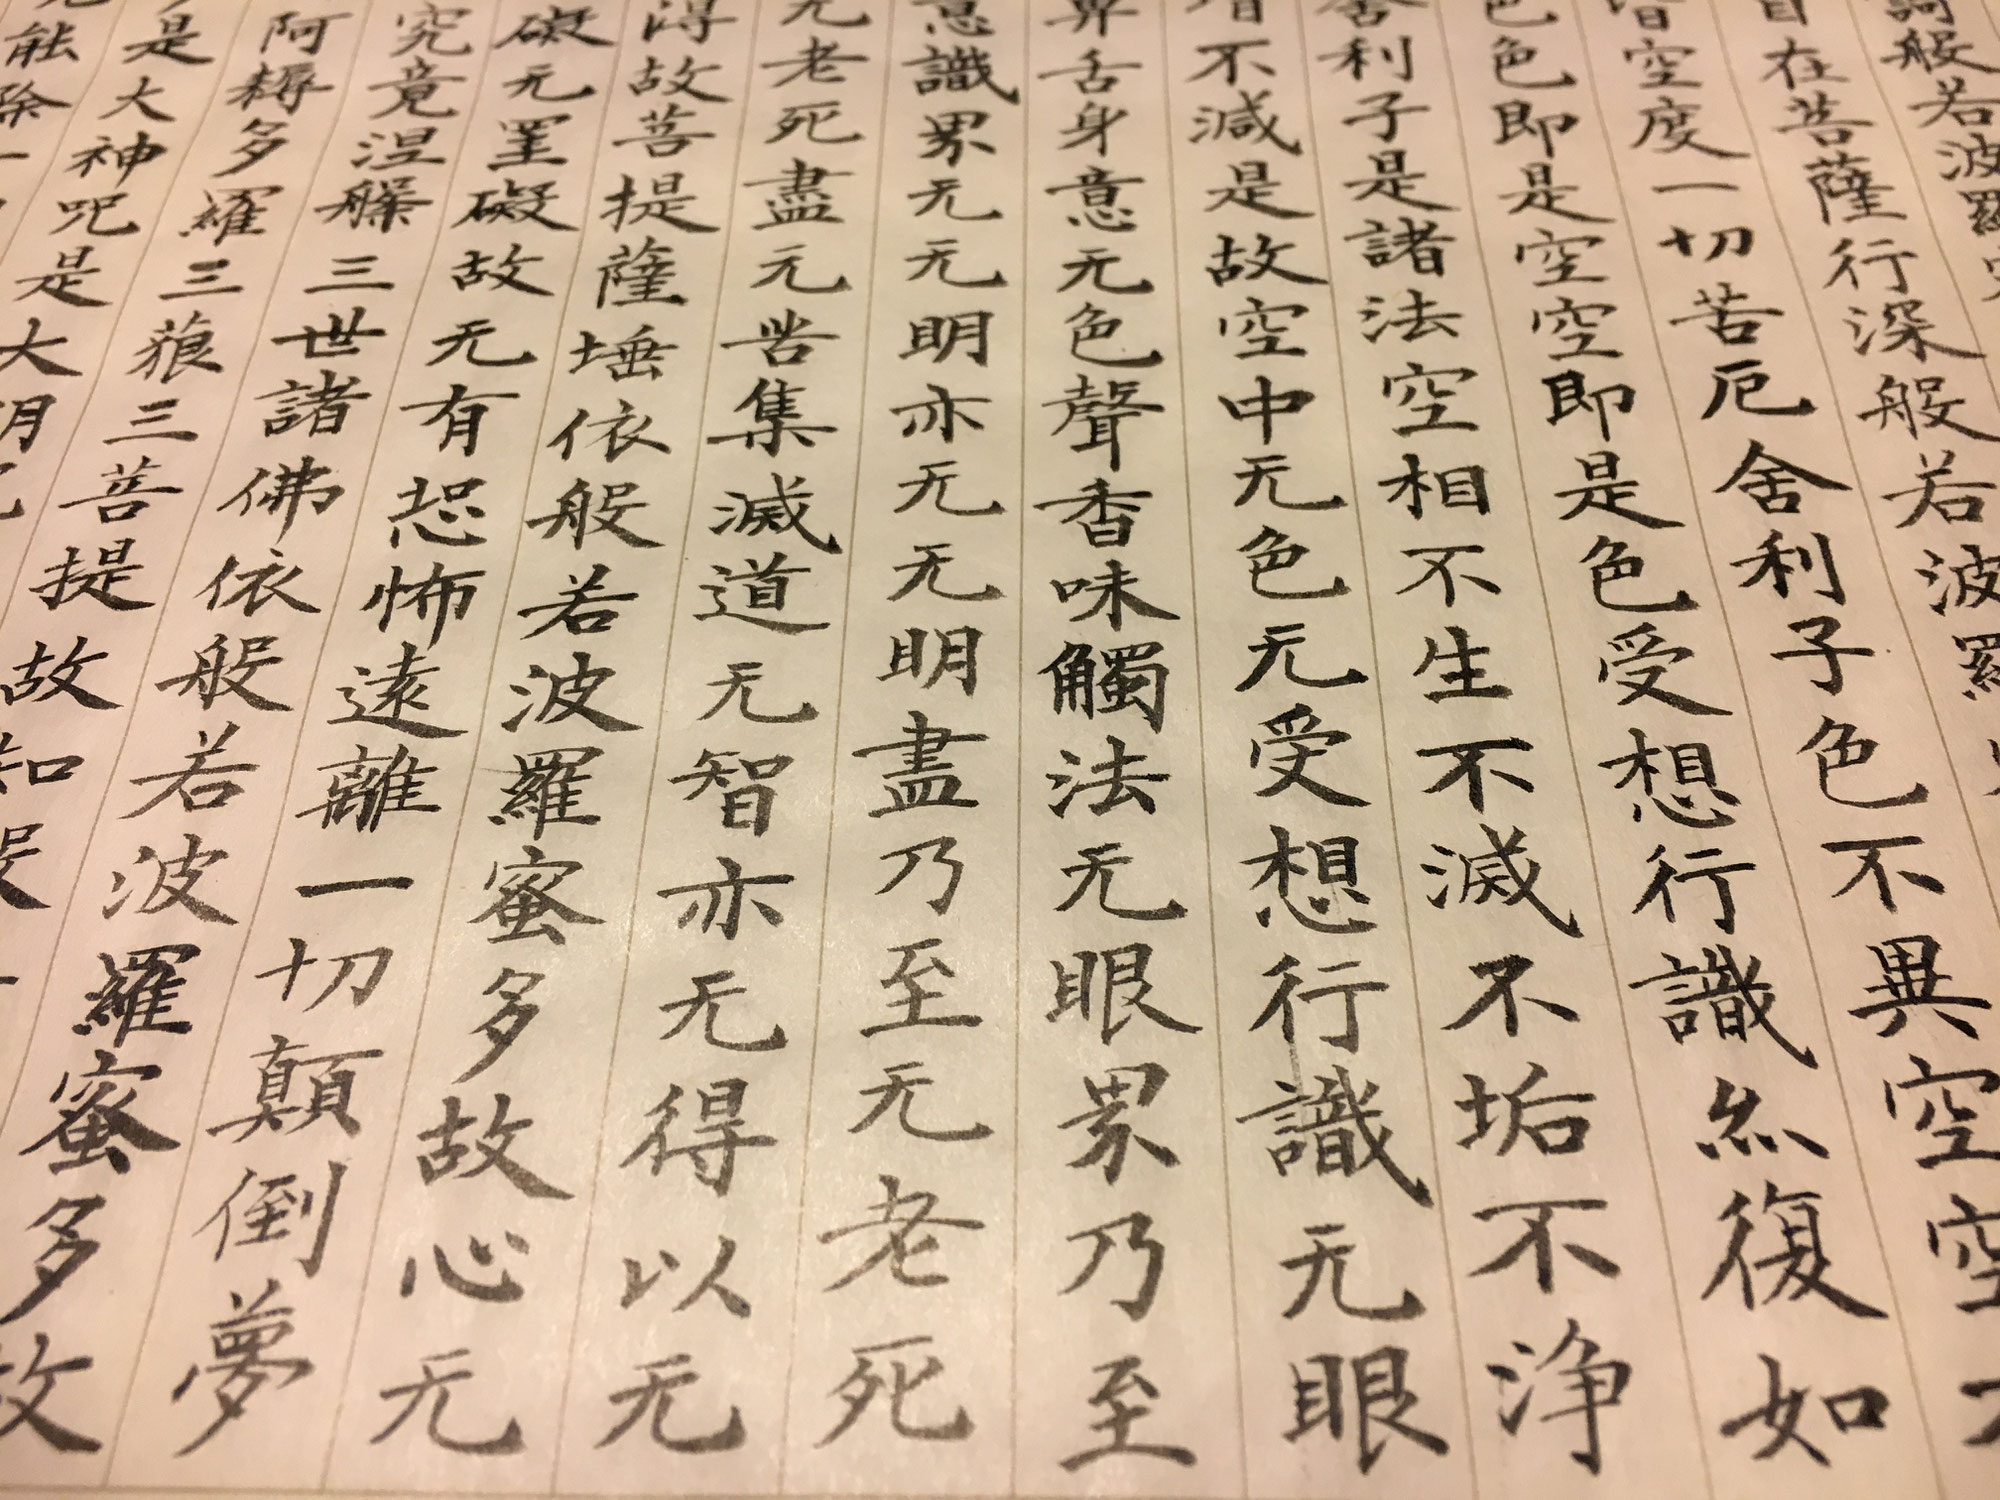 訶般若波羅
自在菩薩行深般若波羅
皆空度一切苦厄舍利子色不異空空
色色即是空空即是色受想行識亦復如
舍利子是諸法空相不生不滅不垢不净
增不減是故空中无色无受想行識无眼
界舌身意无色聲香味觸法无眼界乃至
意識界无无明亦无无明盡乃至无老死
无老死盡无苦集滅道无智亦无得以无
得故菩提薩埵依般若波羅蜜多故心无
礙无罣礙故无有恐怖遠離一切顛倒夢
究竟涅槃三世諸佛依般若波羅蜜多故
阿耨多羅三藐三菩提故知般
是大神咒是大明咒
能除一